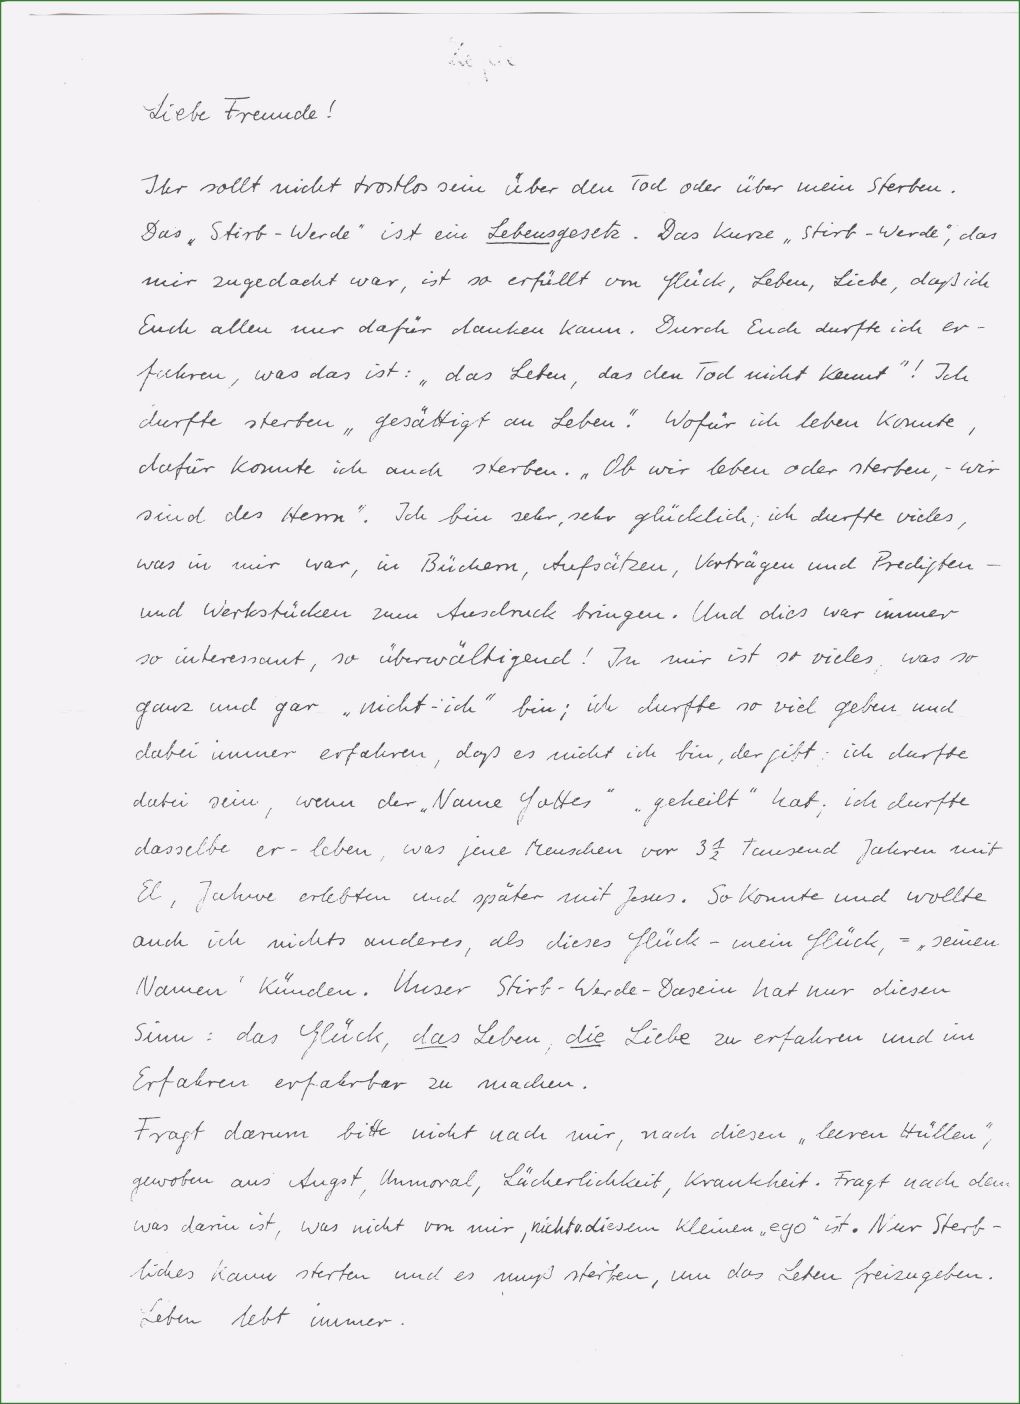 Liebe Freunde!
Ihr sollt nicht trostlos sein über den Tod oder über mein Sterben.
Das „Stirb-Werde" ist ein Lebensgesetz. Das kurze „Stirb-Werde", das
mir zugedacht war, ist so erfüllt von Glück, Leben, Liebe, daß ich
Euch allen nur dafür danken kann. Durch Euch durfte ich er-
fahren, was das ist: „das Leben, das den Tod nicht kennt"! Ich
durfte sterben „gesättigt an Leben". Wofür ich leben konnte,
dafür konnte ich auch sterben. „Ob wir leben oder sterben, - wir
sind des Herrn". Ich bin sehr, sehr glücklich; ich durfte vieles,
was in mir war, in Büchern, Aufsätzen, Vorträgen und Predigten -
und Werkstücken zum Ausdruck bringen. Und dies war immer
so interessant, so überwältigend! In mir ist so vieles, was so
ganz und gar „nicht-ich" bin; ich durfte so viel geben und
dabei immer erfahren, daß es nicht ich bin, der gibt; ich durfte
dabei sein, wenn der „Name Gottes" „geheilt" hat; ich durfte
dasselbe er-leben, was jene Menschen vor 3½ Tausend Jahren mit
El, Jahwe erlebten und später mit Jesus. So konnte und wollte
auch ich nichts anderes, als dieses Glück - mein Glück, = „seinen
Namen" künden. Unser Stirb-Werde-Dasein hat nur diesen
Sinn: das Glück, das Leben, die Liebe zu erfahren und im
Erfahren erfahrbar zu machen.
Fragt darum bitte nicht nach mir, nach diesen „leeren Hüllen",
gewoben aus Angst, Unmoral, Lächerlichkeit, Krankheit. Fragt nach dem
was darin ist, was nicht von mir, nicht v. diesem kleinen „ego" ist. Nur Sterb-
liches kann sterben und es muß sterben, um das Leben freizugeben.
Leben lebt immer.